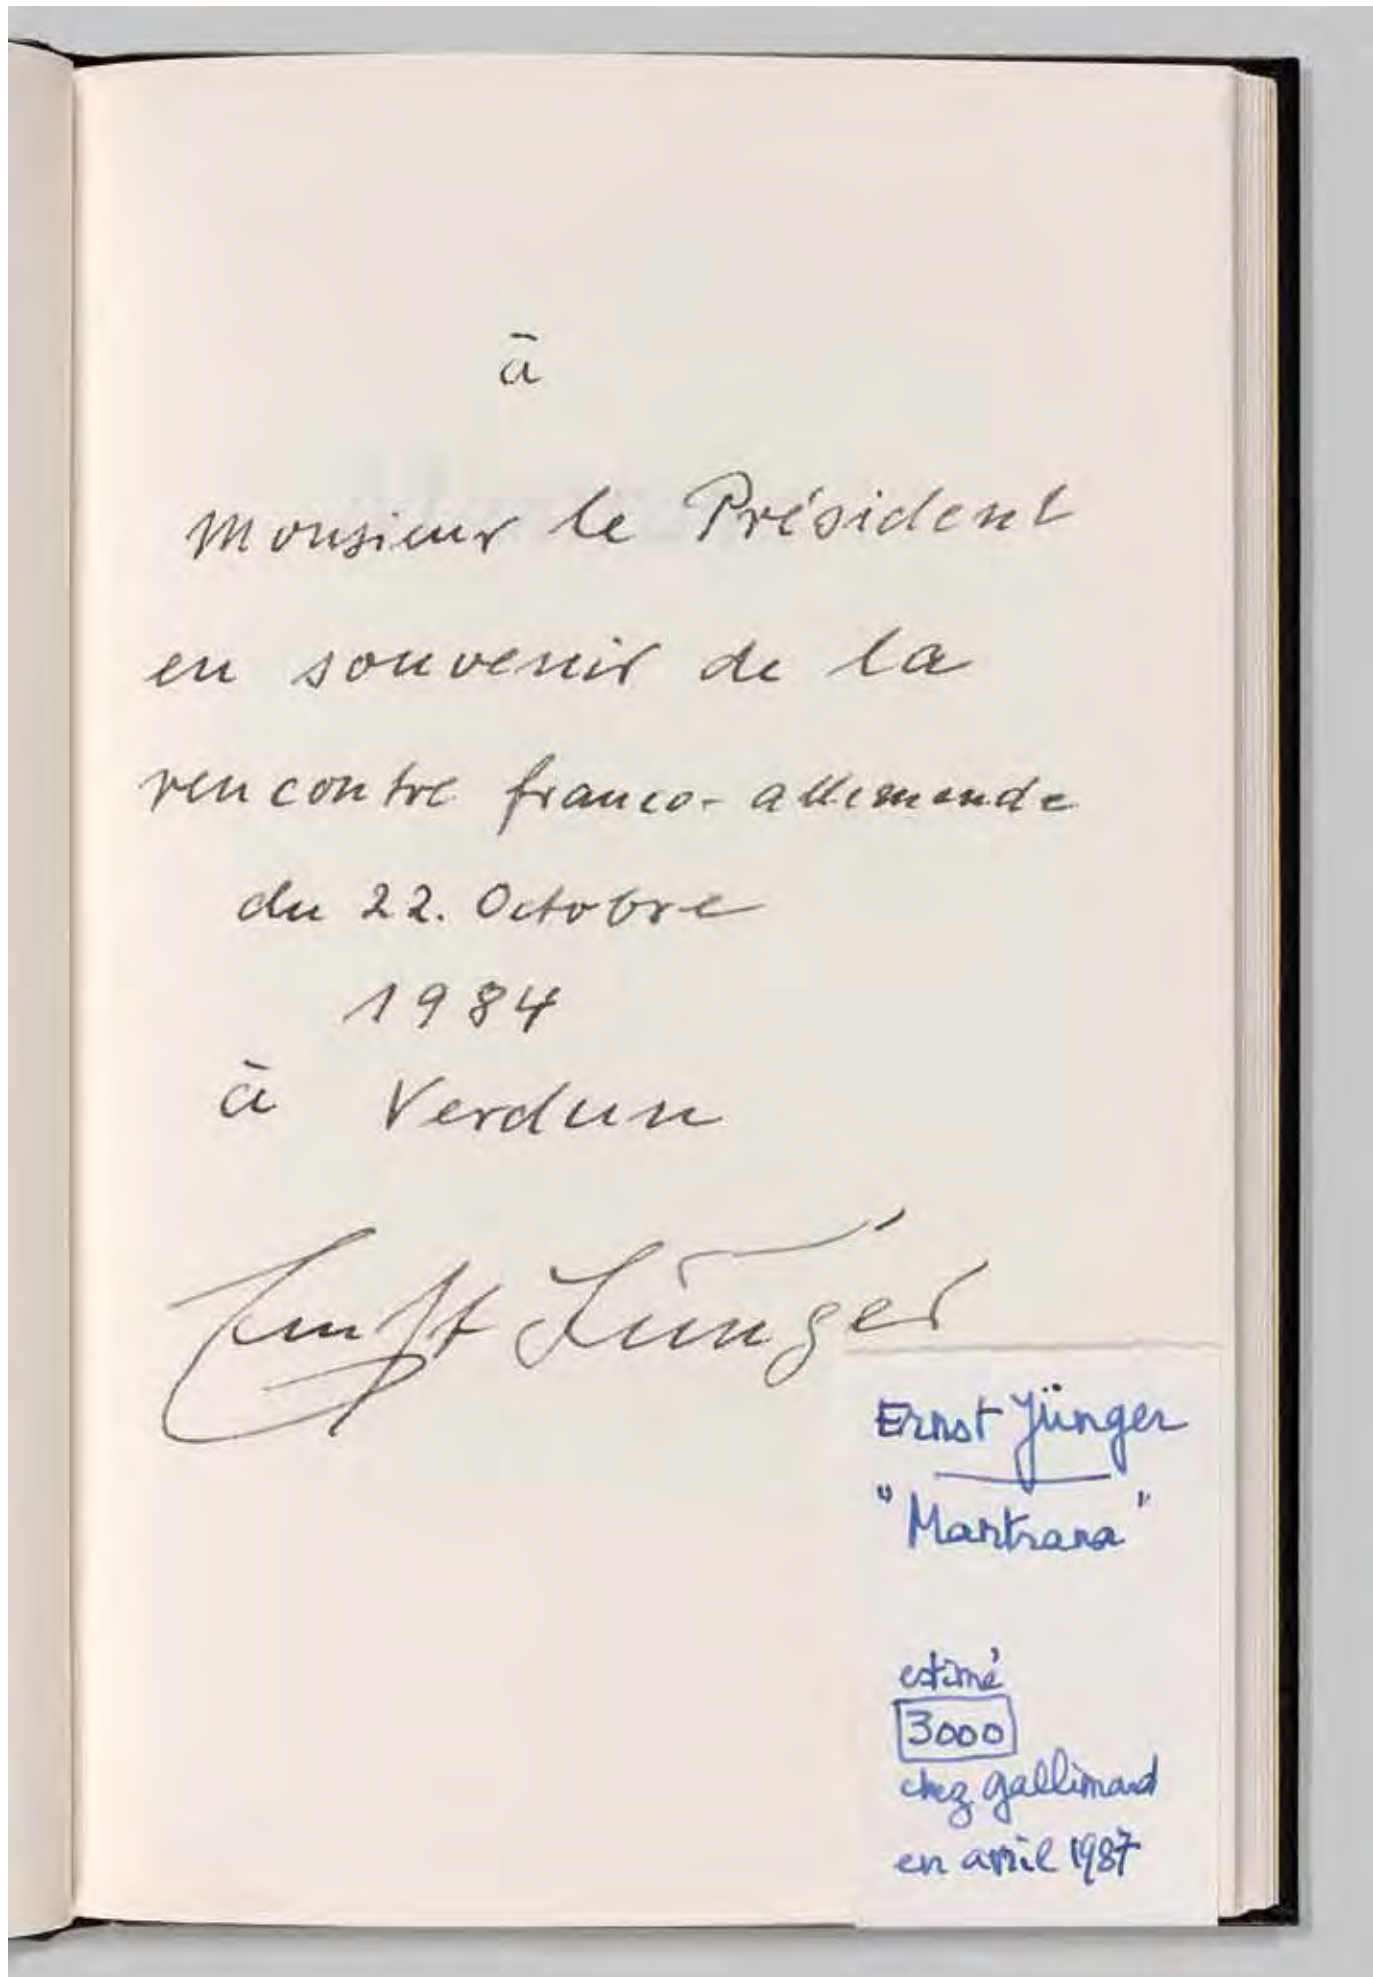 à
Monsieur le Président
en souvenir de la
rencontre franco-allemande
du 22. Octobre
1984
à Verdun
Ernst Jünger
Ernst Jünger
"Mantrana"
estimé
3000
chez gallimard
en avril 1987